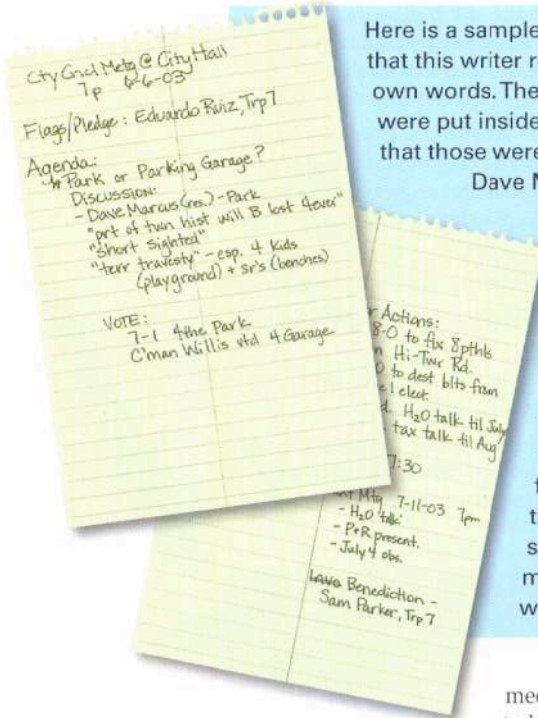 Here is a sample
that this writer
own words. The
were put inside
that those were
Dave
Cty Cncl Metg @ City Hall
7p 6-6-03
Flags/Pledge: Eduardo Ruiz, Trp 7
Agenda:
Park or Parking Garage?
Discussion:
- Dave Marcus (res.) - Park
"prt of twn hist will B lost 4ever"
"short sighted"
"terr travesty" - esp. 4 kids
(playground) + sr's (benches)
VOTE:
7-1 4 the Park
C'man Willis vtd 4 Garage
Actions:
8-0 to fix 8 pthls
Hi-Twr Rd.
to dest blts from
1 elect.
H₂O talk til July
tax talk til Aug
7:30
Mtg 7-11-03 7pm
- H₂O talk
- P+R present.
- July 4 obs.
Benediction -
Sam Parker, Trp 7